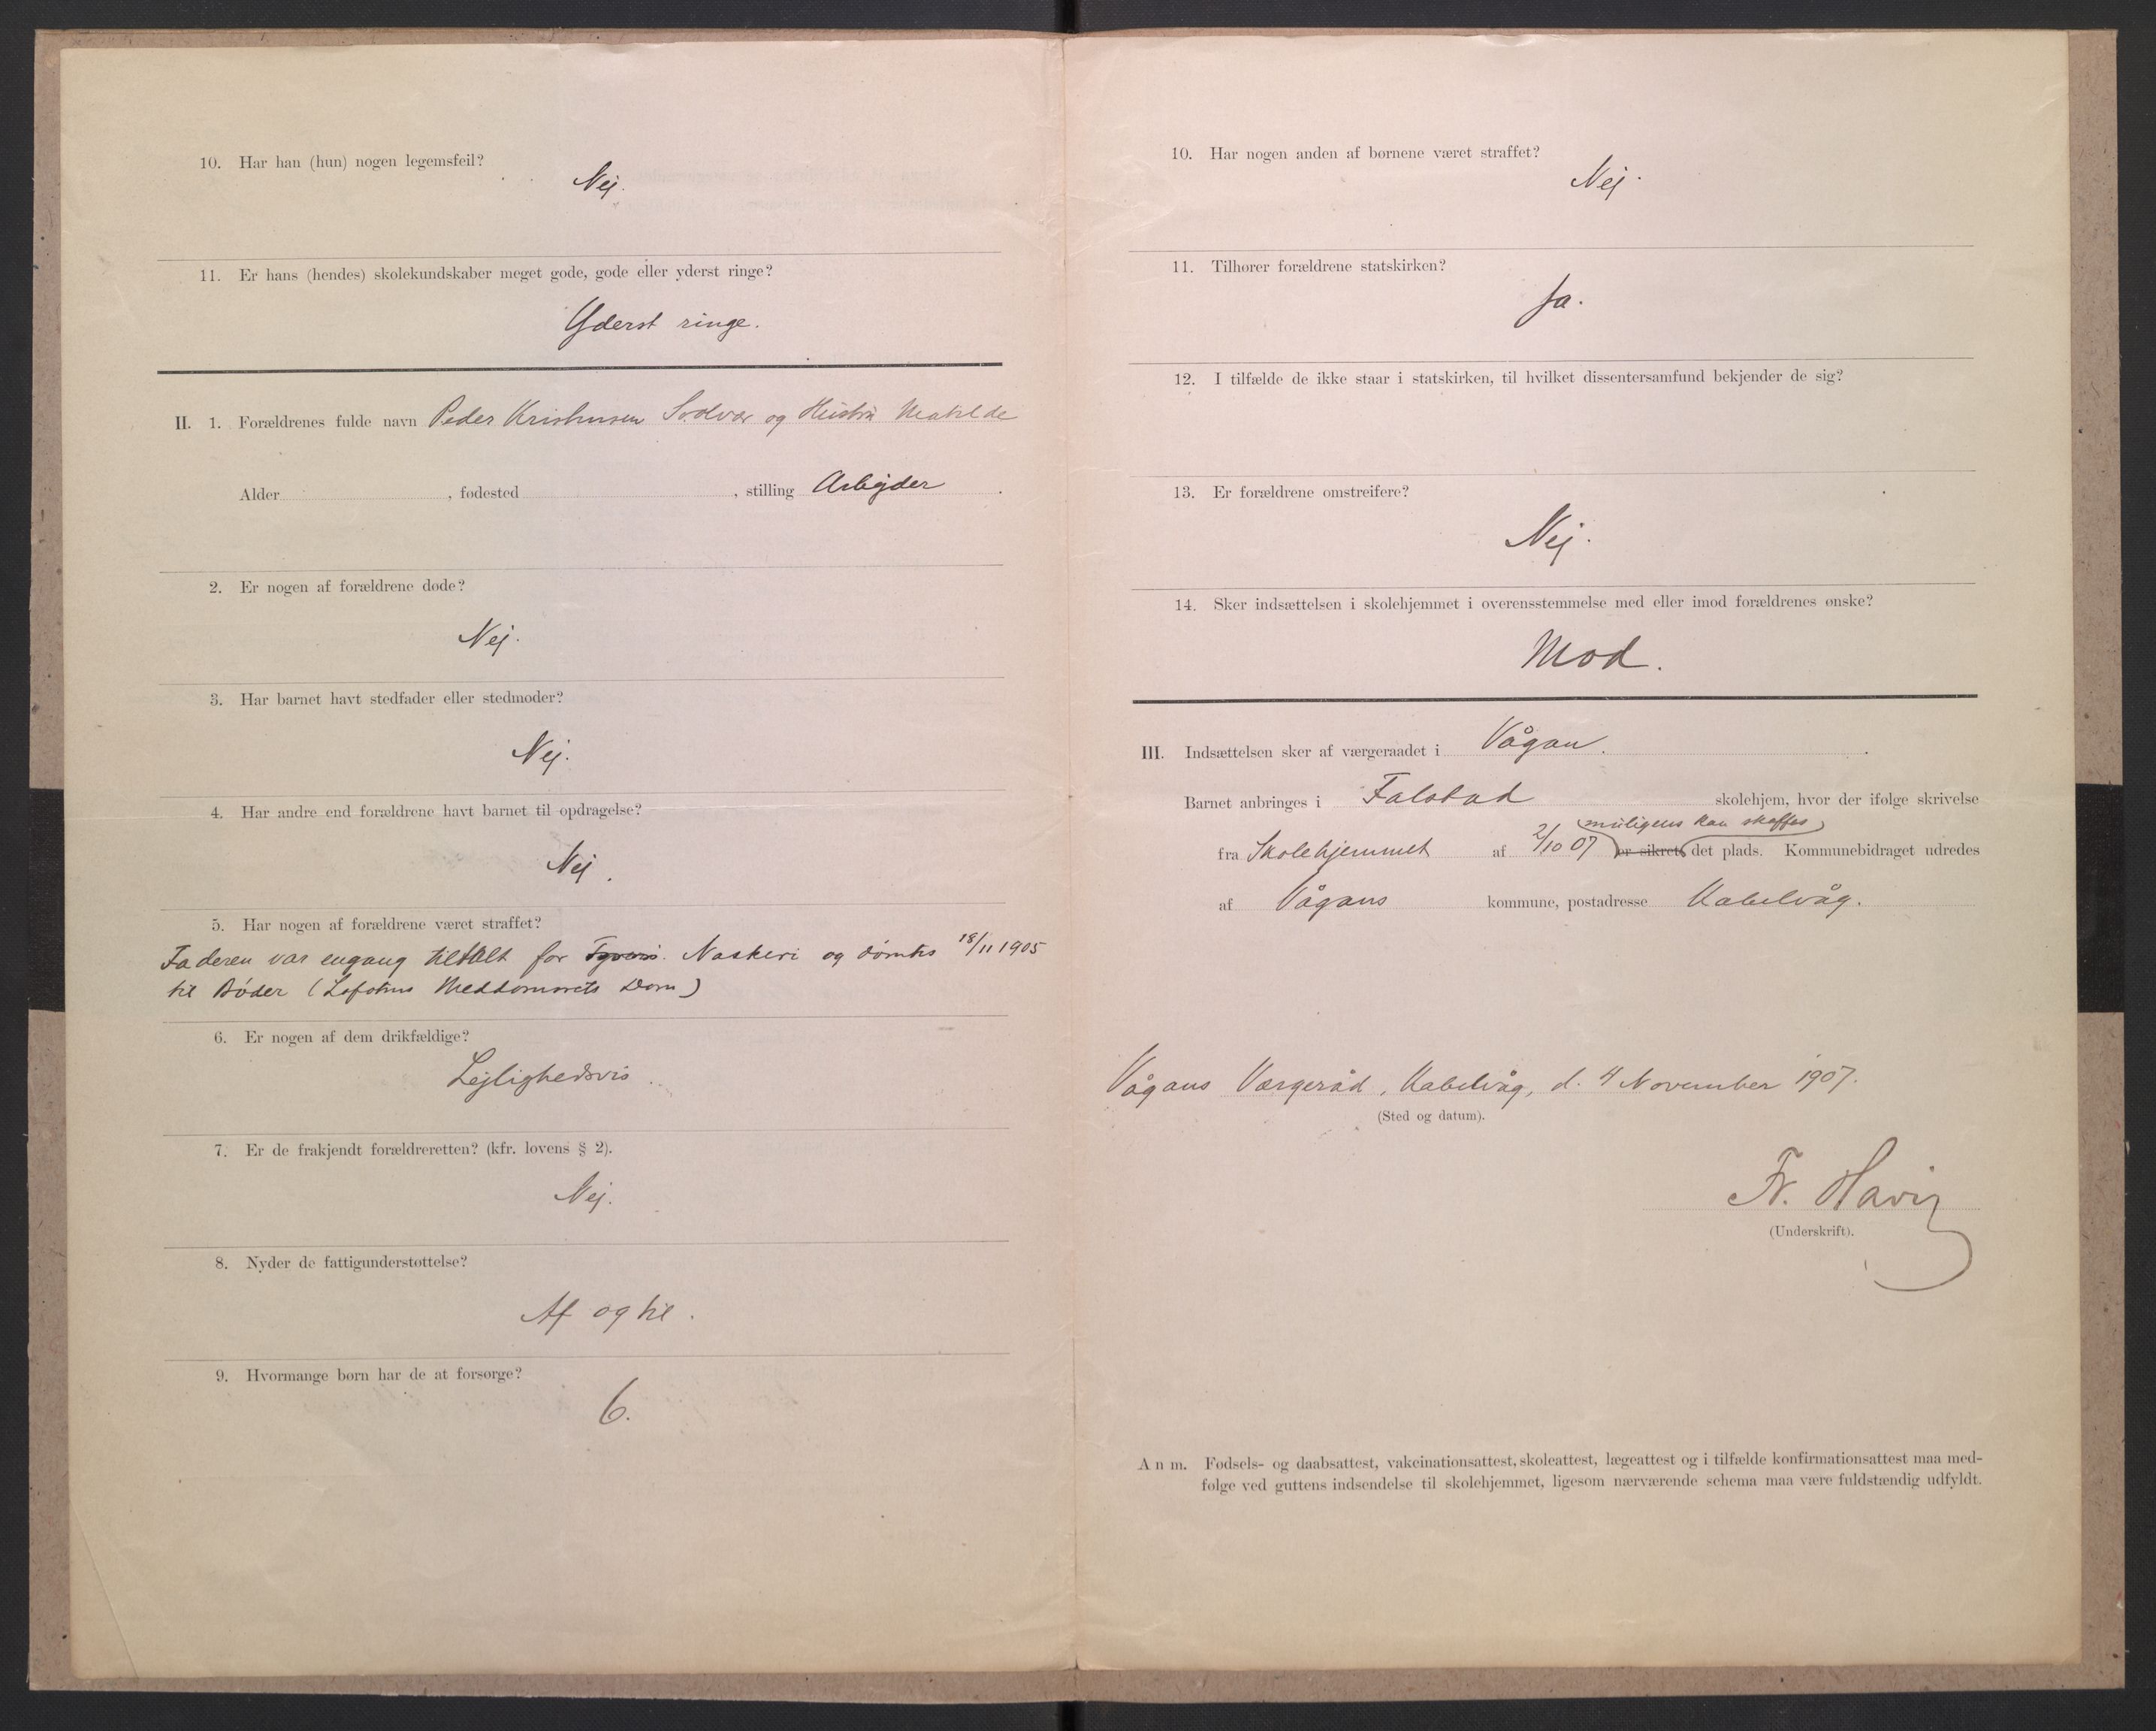 10. Har han (hun) nogen legemsfeil?
Nej.
11. Er hans (hendes) skolekundskaber meget gode, gode eller yderst ringe?
Yderst ringe.
II. 1. Forældrenes fulde navn Peder Kristensen Svolvær og Hustru Matilde
Alder , fødested , stilling Arbejder .
2. Er nogen af forældrene døde?
Nej.
3. Har barnet havt stedfader eller stedmoder?
Nej.
4. Har andre end forældrene havt barnet til opdragelse?
Nej.
5. Har nogen af forældrene været straffet?
Faderen var engang tiltalt for Tyveri. Naskeri og dømtes 18/11 1905
til Bøder (Lofotens Meddomsrets Dom)
6. Er nogen af dem drikfældige?
Lejlighedsvis.
7. Er de frakjendt forældreretten? (kfr. lovens § 2).
Nej.
8. Nyder de fattigunderstøttelse?
Af og til.
9. Hvormange børn har de at forsørge?
6.
10. Har nogen anden af børnene været straffet?
Nej.
11. Tilhører forældrene statskirken?
Ja.
12. I tilfælde de ikke staar i statskirken, til hvilket dissentersamfund bekjender de sig?
13. Er forældrene omstreifere?
Nej.
14. Sker indsættelsen i skolehjemmet i overensstemmelse med eller imod forældrenes ønske?
Mod.
III. Indsættelsen sker af værgeraadet i Vågan.
Barnet anbringes i Falstad skolehjem, hvor der ifølge skrivelse
muligens kan skaffes
fra Skolehjemmet af 2/10 07 er sikret det plads. Kommunebidraget udredes
af Vågans kommune, postadresse Kabelvåg.
Vågans Værgeråd, Kabelvåg, d. 4 November 1907.
(Sted og datum).
Fr. Havig
(Underskrift).
Anm. Fødsels- og daabsattest, vakcinationsattest, skoleattest, lægeattest og i tilfælde konfirmationsattest maa med-
følge ved guttens indsendelse til skolehjemmet, ligesom nærværende schema maa være fuldstændig udfyldt.